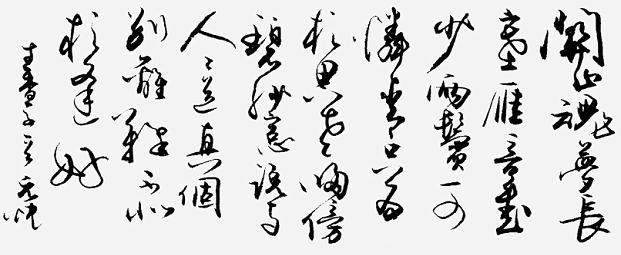 關山魂夢長
塞雁音書
少兩鬢可
憐青只為
相思老歸傍
碧紗窗說與
人々道真個
別離難不似
相逢好
生查子